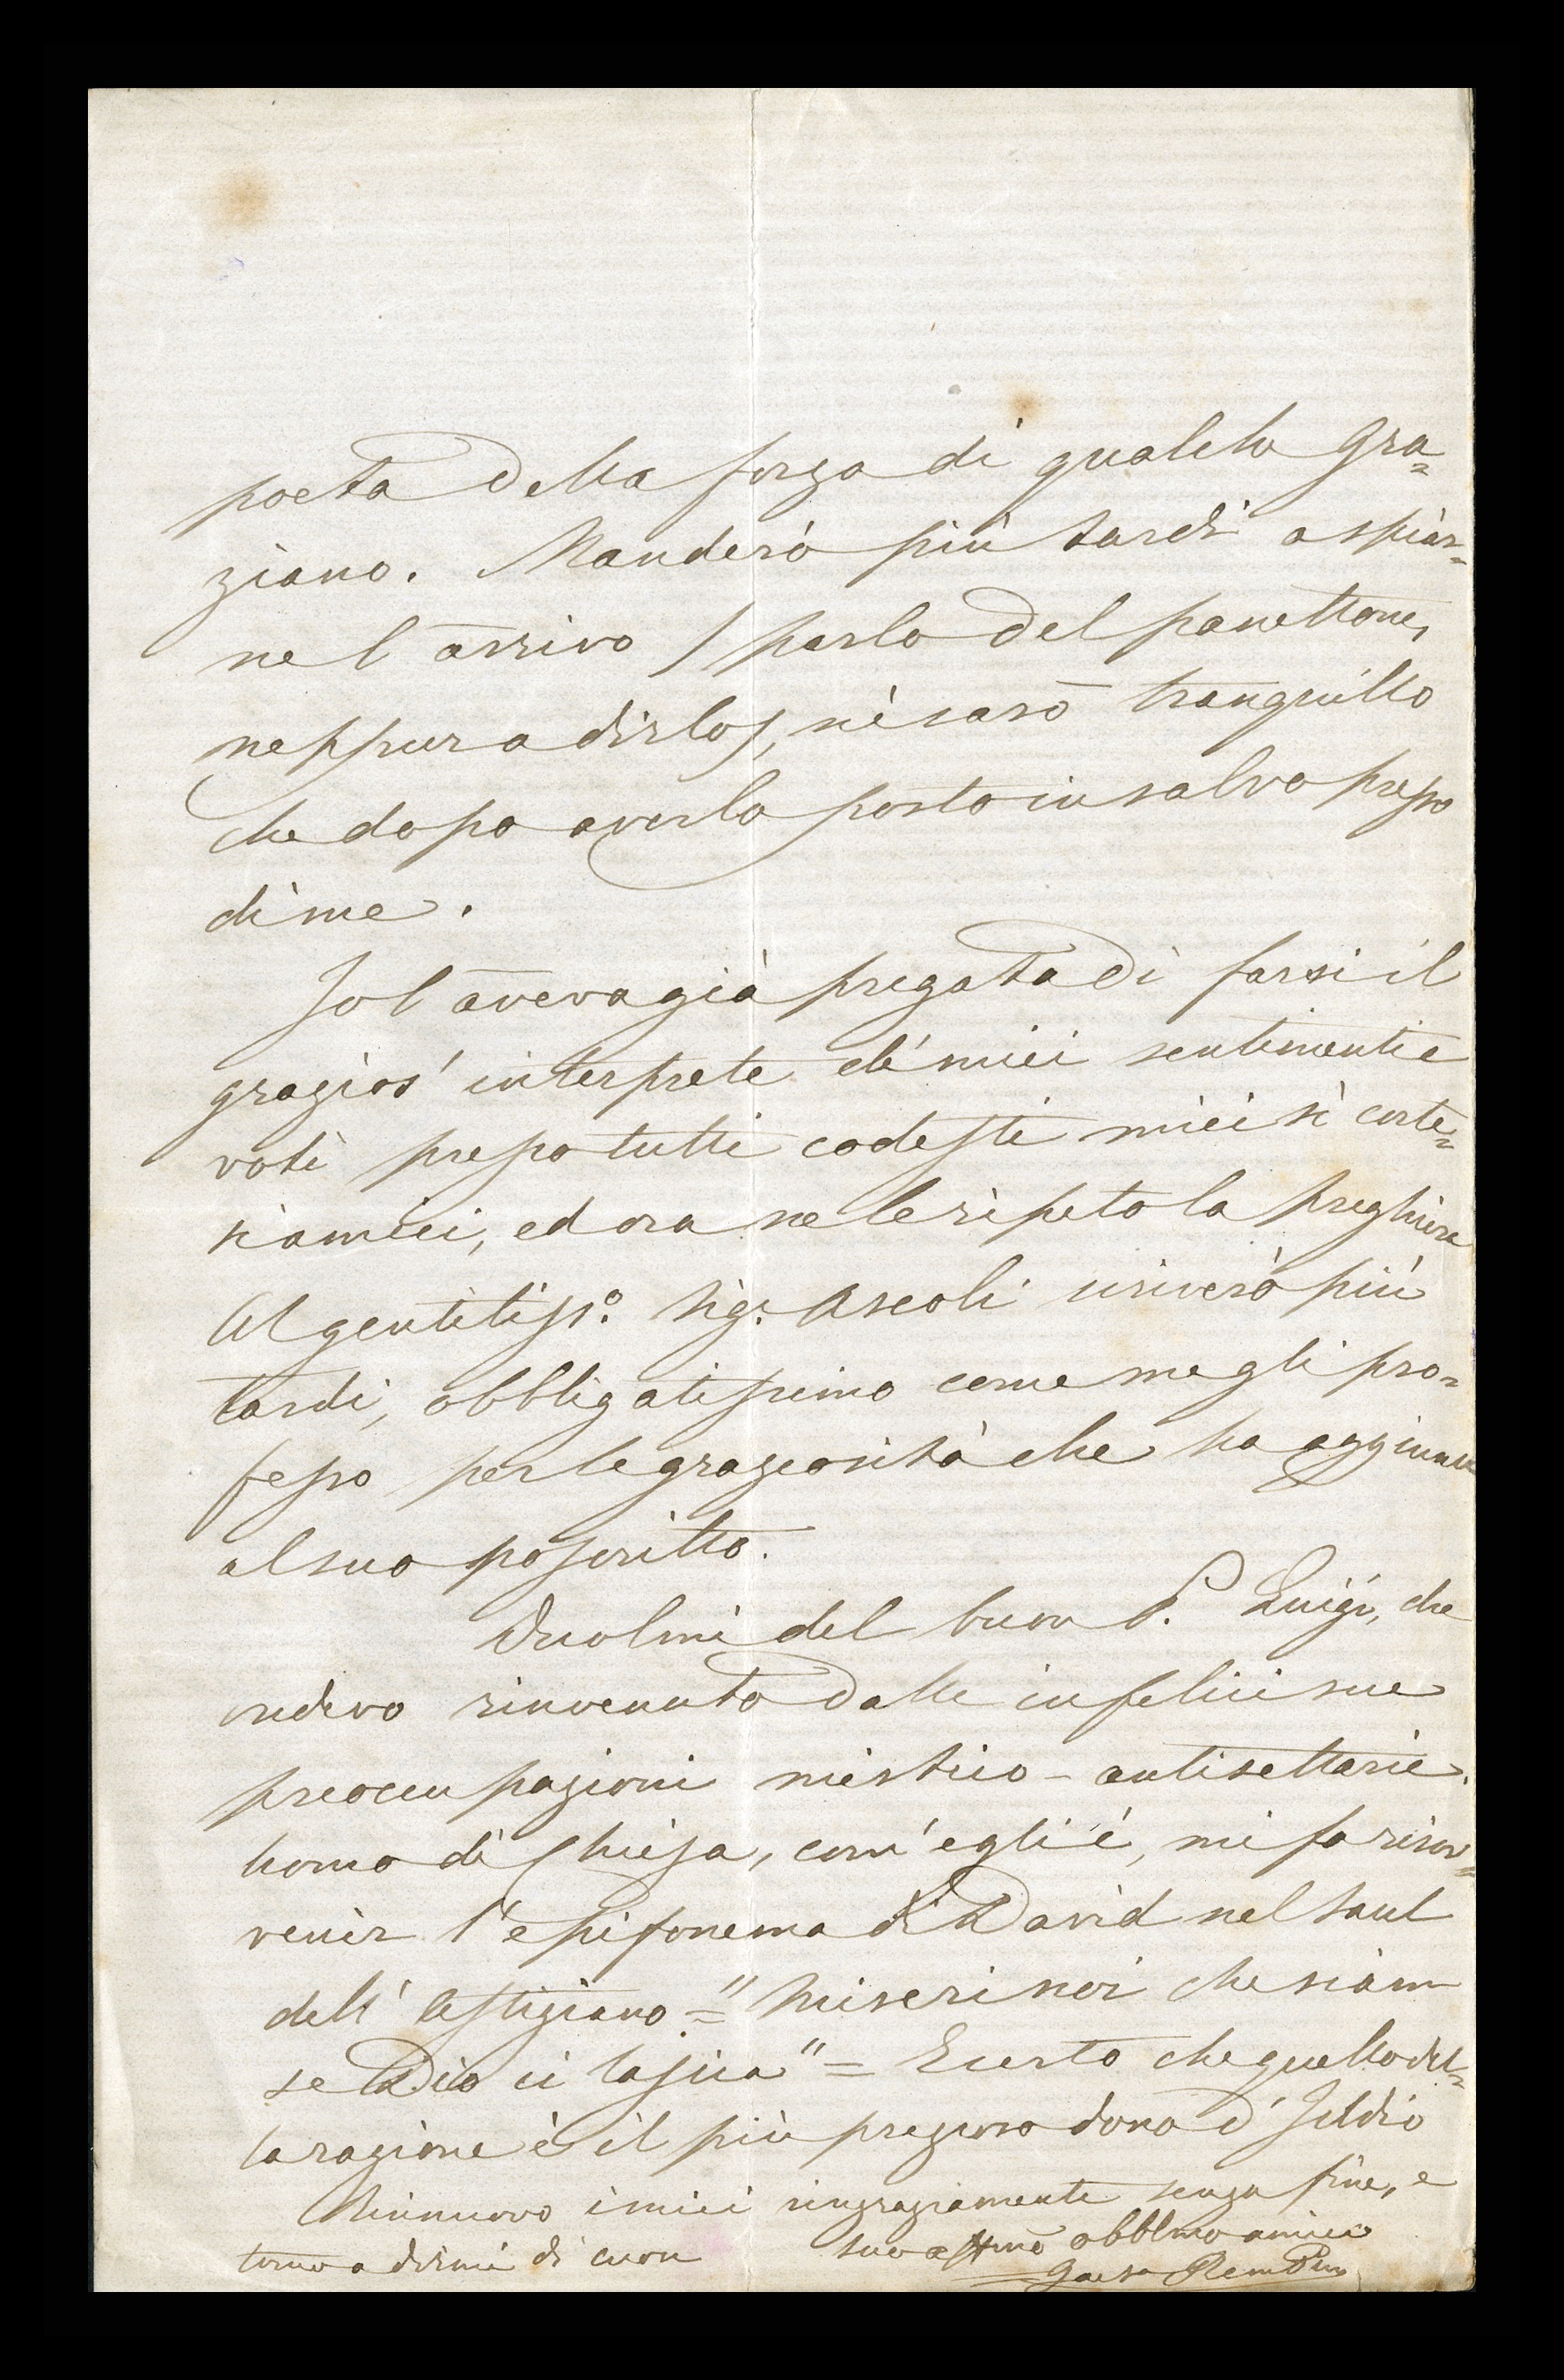 poeta della forza di qualche Gra=
ziano. Manderò più tardi a spiar=
ne l'arrivo / parlo del panettone,
neppur a dirlo /, nè sarò tranquillo
che dopo averlo posto in salvo presso
di me.
Io l'aveva già pregata di farsi il
grazios' interprete de' miei sentimenti e
voti presso tutti codesti miei sì corte=
si amici, ed ora ne le ripeto la preghiera
Al gentiliss.º Sig.r Ascoli scriverò più
tardi, obbligatissimo come me gli pro=
fesso per le graziosità che ha aggiunte
al suo poscritto.
Duolmi del buon P. Luigi, che
credevo rinvenuto dalle infelici sue
preoccupazioni mistico-antisettarie.
Uomo di Chiesa, com'egli è, mi fa risov=
venir l'epifonema di David nel Saul
dell'Astigiano = "Miseri noi che siam
se Dio ci lascia" = E certo che quello del=
la ragione è il più prezioso dono d'Iddio
Rinnuovo i miei ringraziamenti senza fine, e
torno a dirmi di cuore suo affmo obblmo amico